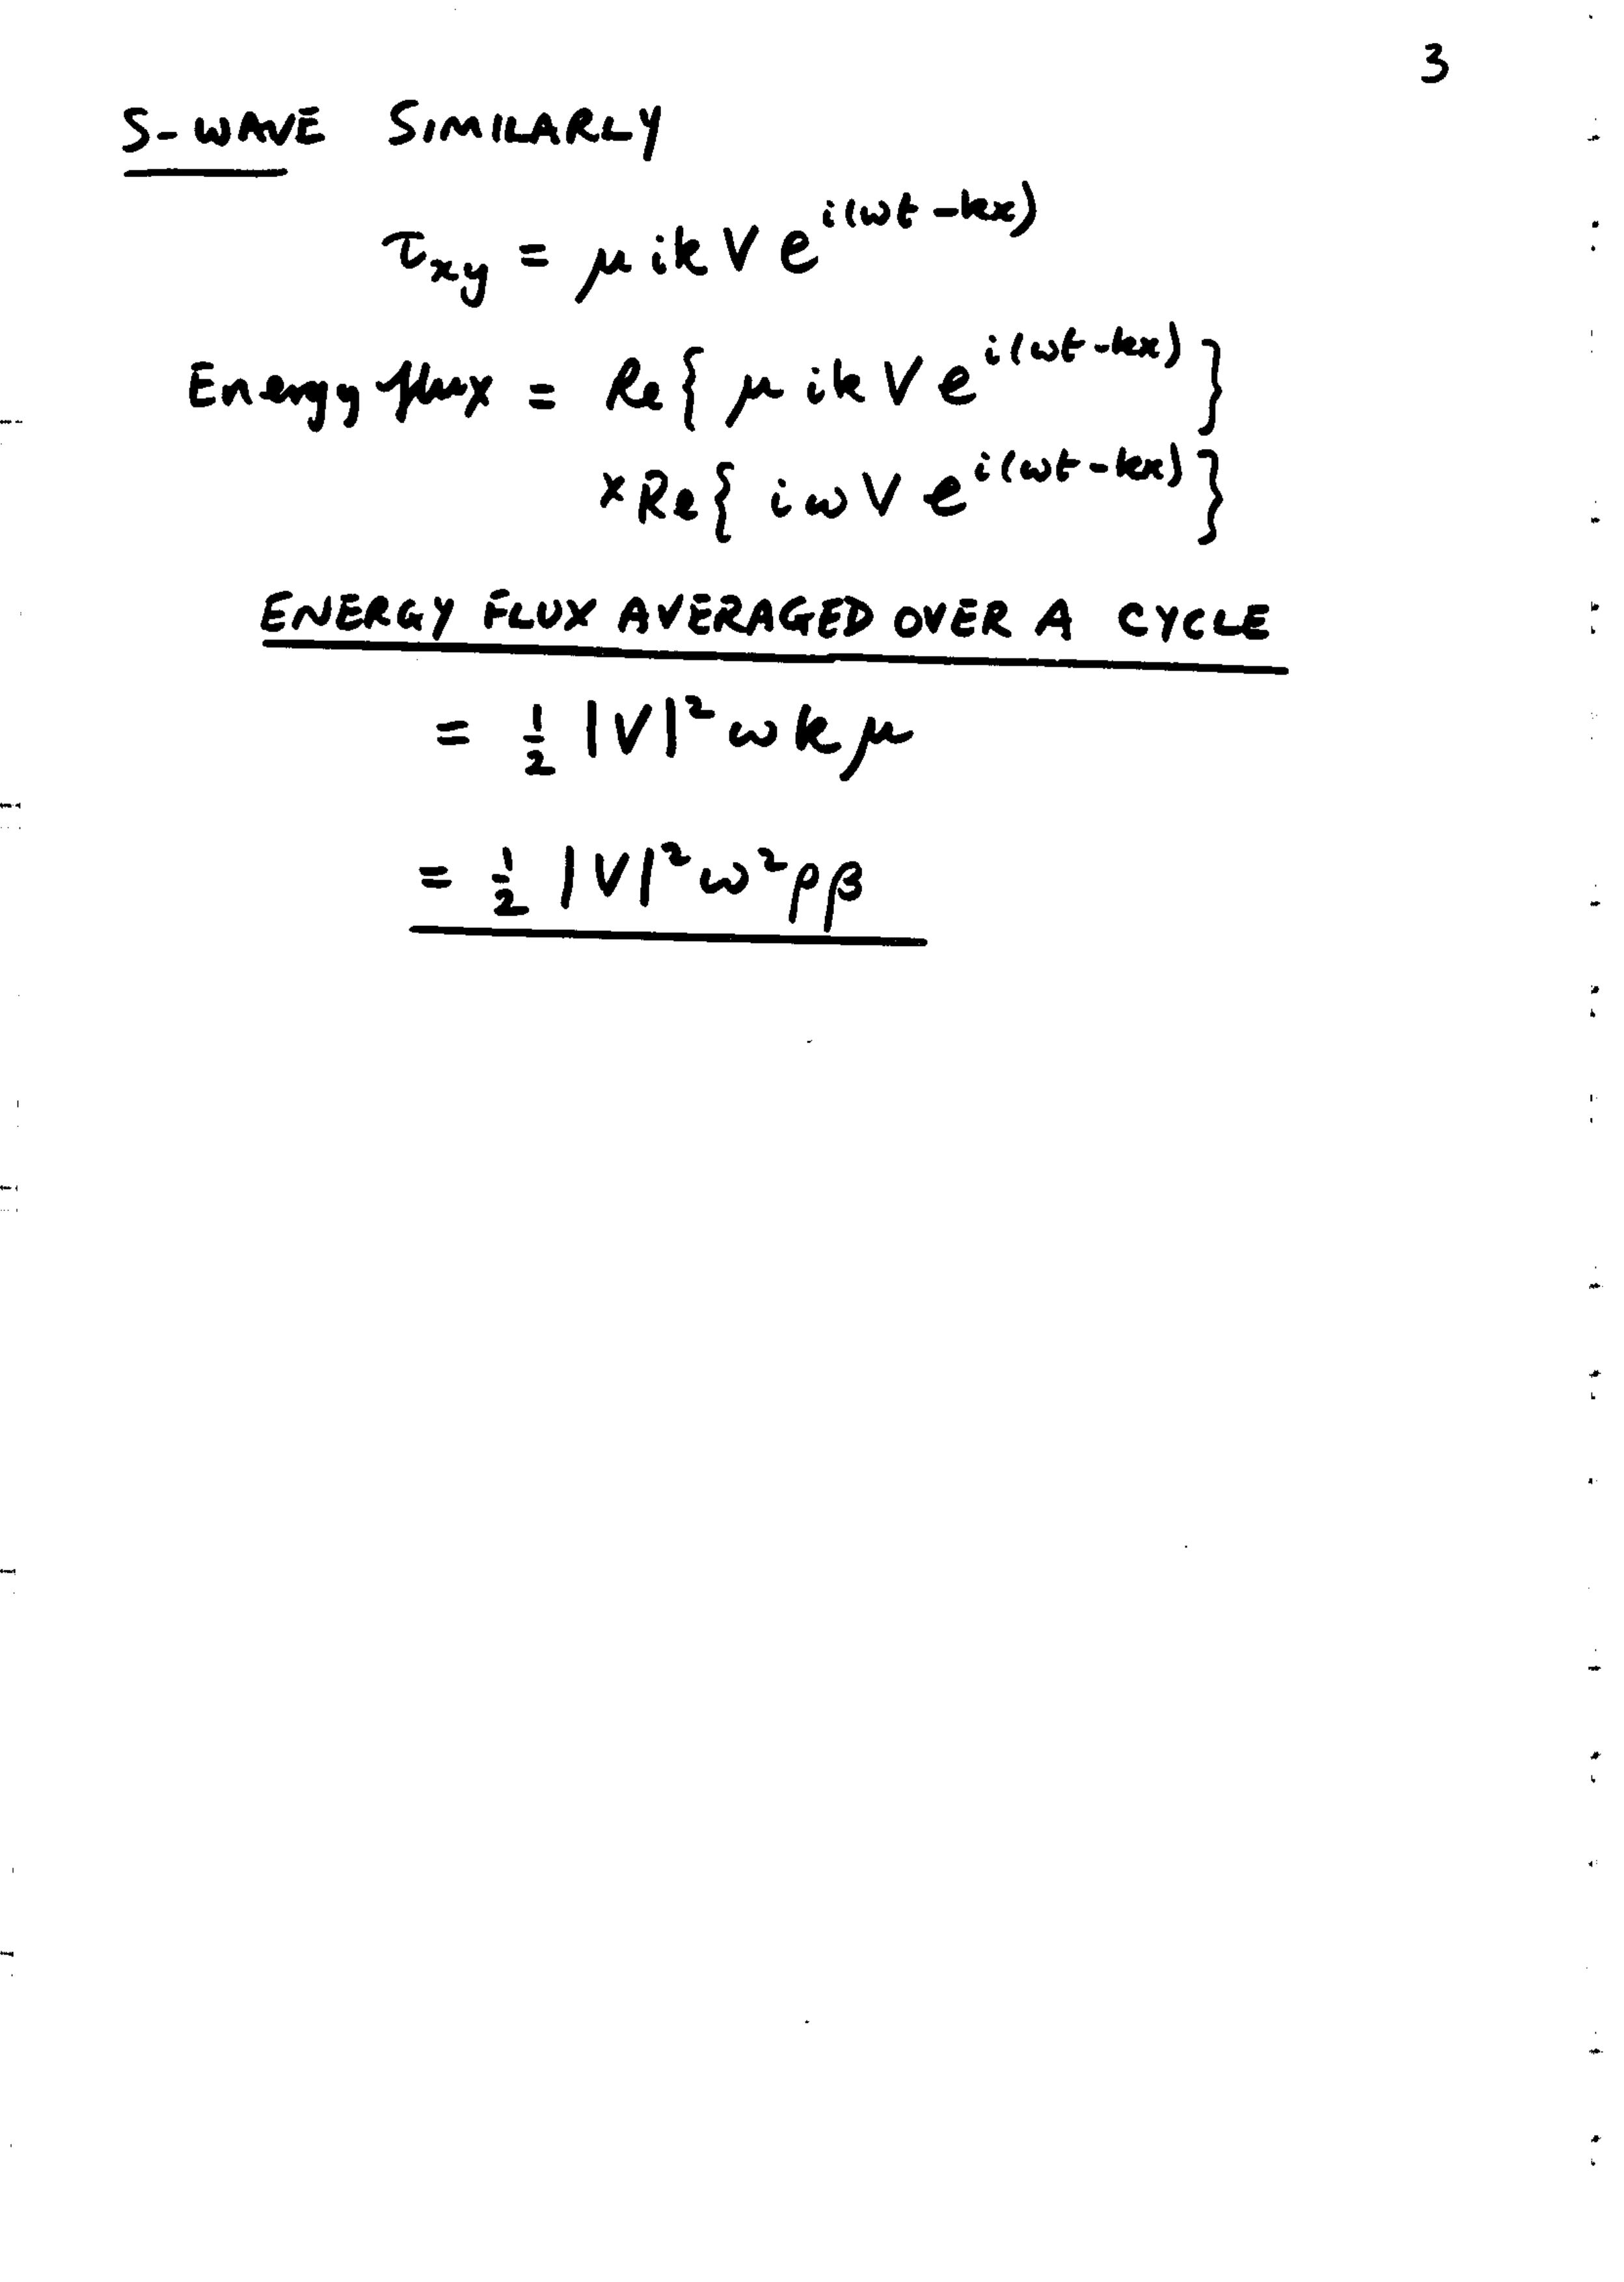 3
S-WAVE SIMILARLY
τ_xy = μ ik V e^{i(ωt - kx)}
Energy flux = Re{ μ ik V e^{i(ωt - kx)} }
× Re{ iω V e^{i(ωt - kx)} }
ENERGY FLUX AVERAGED OVER A CYCLE
= ½ |V|² ω k μ
= ½ |V|² ω² ρ β